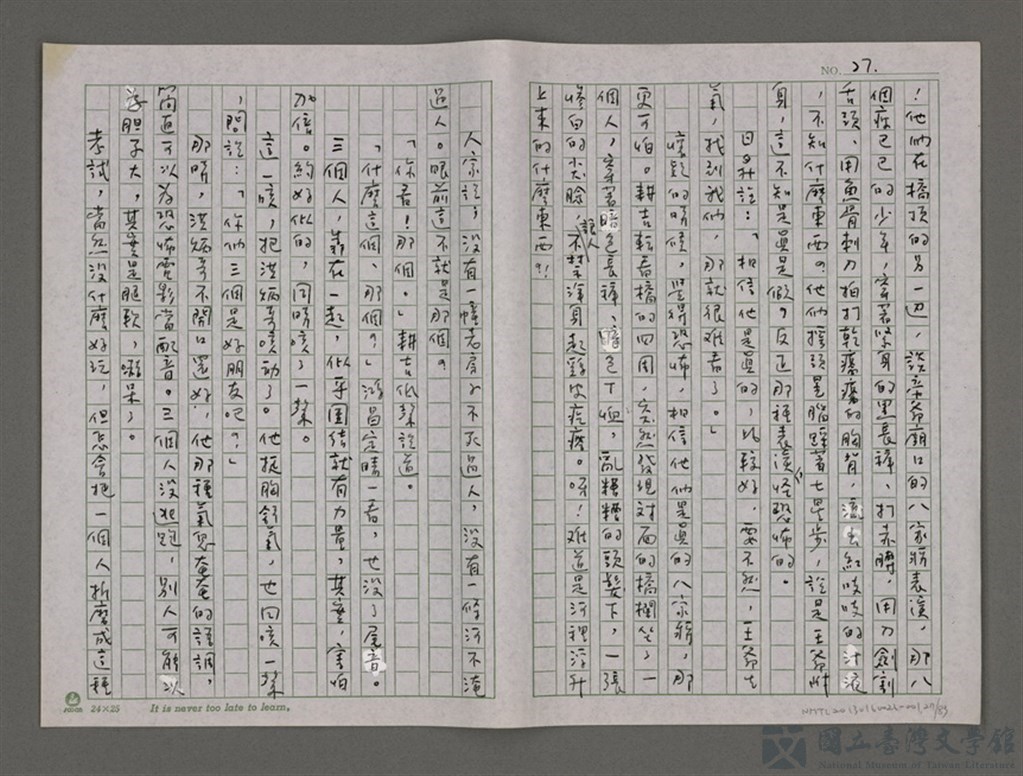 NO. 27.
！他們在橋頂的另一边，談辛爺廟口的八家將表演，那八
個疲已已的少年，穿著緊身的黑長褲、打赤膊，用刀劍割
舌頭、用魚骨刺刀拍打乾癟癟的胸背，流出紅吱吱的汁液
，不知什麼東西？他們搖頭晃腦踩著七星步，說是王爺附
身，這不知是真是假？反正那種表演怪恐怖的。
日升說：「相信他是真的，比較好，要不然，王爺生
氣，找到我們，那就很难看了。」
懷疑的時候，覺得恐怖，相信他們是真的八家將，那
更可怕。耕吉転看橋的四周，突然發現対面的橋欄坐了一
個人，穿著暗色長褲、暗色T恤，亂糟糟的頭髮下，一張
慘白的尖臉，讓人不禁渾身起雞皮疙瘩。呀！难道是河裡浮升
上來的什麼東西？！
人家說，沒有一幢老房子不死過人，沒有一條河不淹
過人。眼前這不就是那個？
「你看！那個。」耕吉低聲說道。
「什麼這個、那個？」游昌定睛一看，也沒了尾音。
三個人，靠在一起，似乎團結就有力量，其實，害怕
加倍。約好似的，同時咳了一聲。
這一咳，把洪炳哥咳動了。他挺胸舒氣，也回咳一聲
，問說：「你們三個是好朋友吧？」
那時，洪炳哥不開口還好，他那種氣息奄奄的語調，
簡直可以为恐怖電影當配音。三個人沒逃跑，別人可能以
為胆子大，其實是腿軟，嚇呆了。
考試，當然沒什麼好玩，但怎會把一個人折磨成這種
24×25
It is never too late to learn.
國立臺灣文學館
National Museum of Taiwan Literature